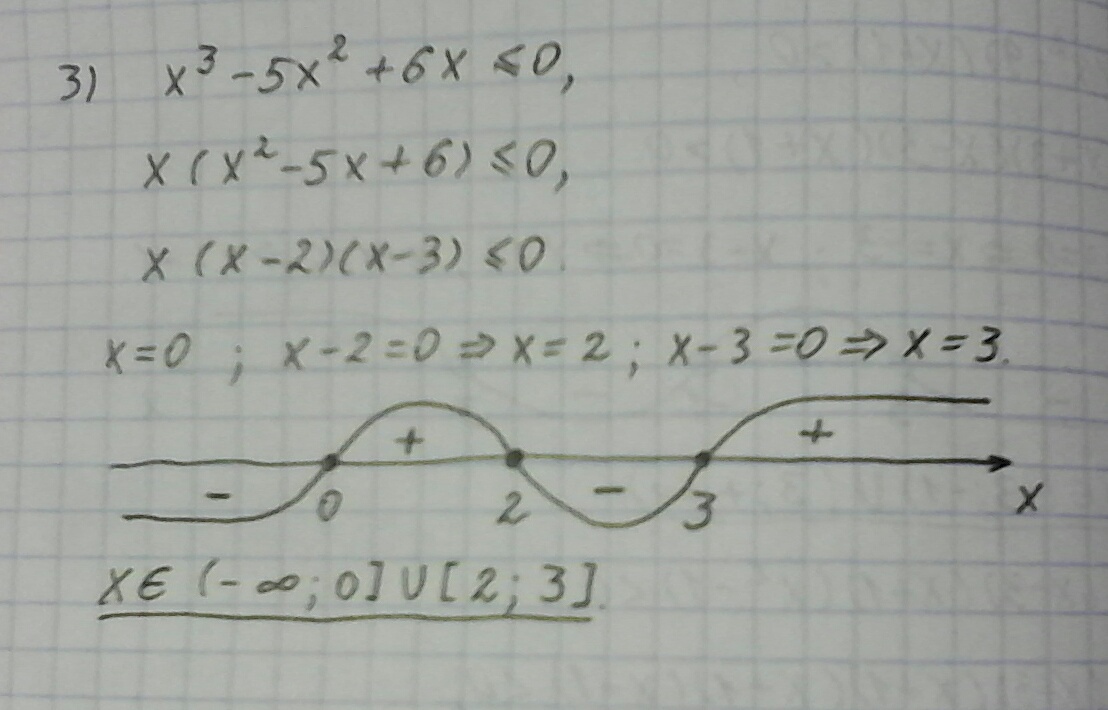 3) x³ - 5x² + 6x ≤ 0,
x (x² - 5x + 6) ≤ 0,
x (x - 2)(x - 3) ≤ 0.
x = 0 ; x - 2 = 0 ⇒ x = 2 ; x - 3 = 0 ⇒ x = 3.
- + - +
0 2 3 x
x ∈ (-∞; 0] ∪ [2; 3].